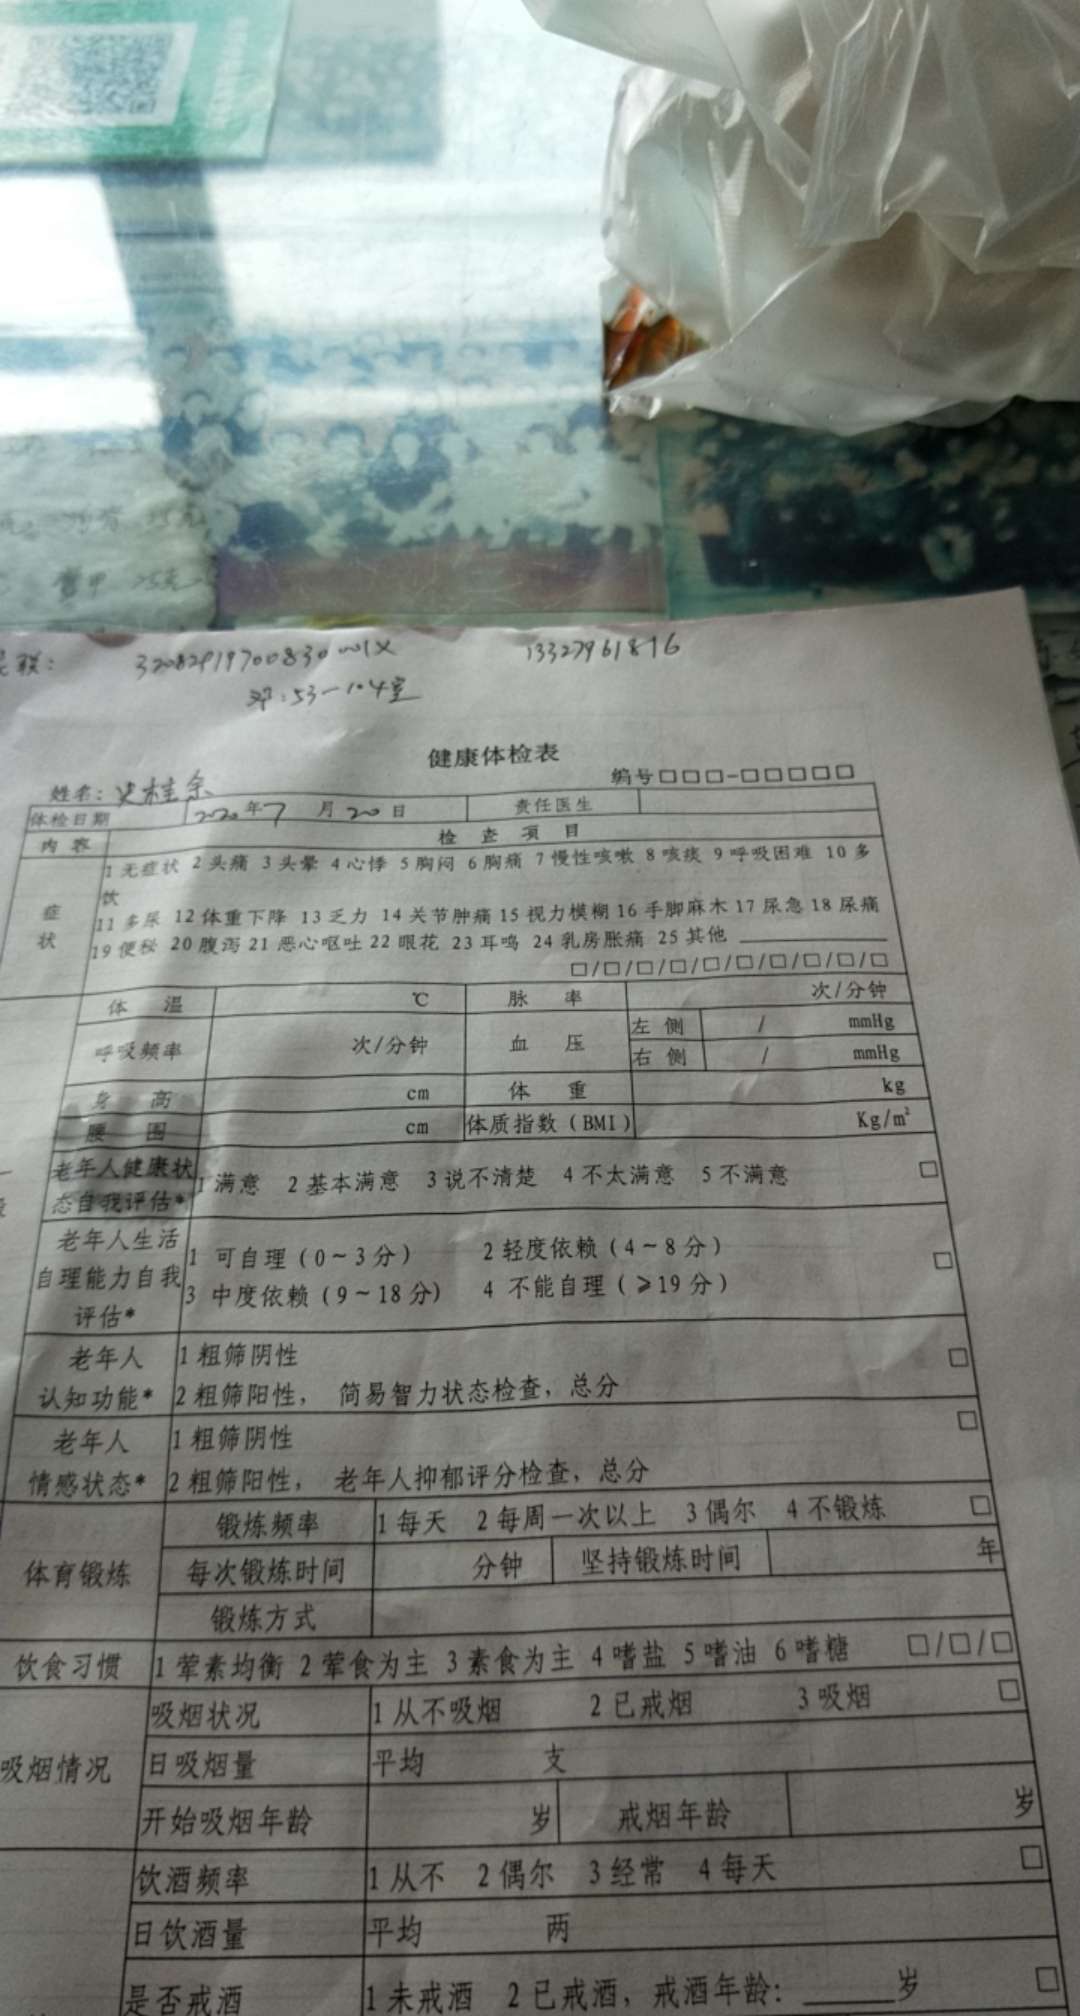 13327961816
53-104室
健康体检表
姓名：史桂余 编号□□□-□□□□□
体检日期 2020年7月20日 责任医生
内容 检查项目
症状 1 无症状 2 头痛 3 头晕 4 心悸 5 胸闷 6 胸痛 7 慢性咳嗽 8 咳痰 9 呼吸困难 10 多
饮
11 多尿 12 体重下降 13 乏力 14 关节肿痛 15 视力模糊 16 手脚麻木 17 尿急 18 尿痛
19 便秘 20 腹泻 21 恶心呕吐 22 眼花 23 耳鸣 24 乳房胀痛 25 其他
□/□/□/□/□/□/□/□/□/□
体温 ℃ 脉率 次/分钟
呼吸频率 次/分钟 血压 左侧 / mmHg
右侧 / mmHg
身高 cm 体重 kg
腰围 cm 体质指数（BMI） Kg/m²
老年人健康状
态自我评估* 1 满意 2 基本满意 3 说不清楚 4 不太满意 5 不满意 □
老年人生活
自理能力自我
评估*
1 可自理（0~3分） 2 轻度依赖（4~8分） □
3 中度依赖（9~18分） 4 不能自理（≥19分）
老年人
认知功能*
1 粗筛阴性 □
2 粗筛阳性， 简易智力状态检查，总分
老年人
情感状态*
1 粗筛阴性 □
2 粗筛阳性， 老年人抑郁评分检查，总分
体育锻炼
锻炼频率 1 每天 2 每周一次以上 3 偶尔 4 不锻炼 □
每次锻炼时间 分钟 坚持锻炼时间 年
锻炼方式
饮食习惯 1 荤素均衡 2 荤食为主 3 素食为主 4 嗜盐 5 嗜油 6 嗜糖 □/□/□
吸烟情况
吸烟状况 1 从不吸烟 2 已戒烟 3 吸烟 □
日吸烟量 平均 支
开始吸烟年龄 岁 戒烟年龄 岁
饮酒频率 1 从不 2 偶尔 3 经常 4 每天 □
日饮酒量 平均 两
是否戒酒 1 未戒酒 2 已戒酒，戒酒年龄：______岁 □